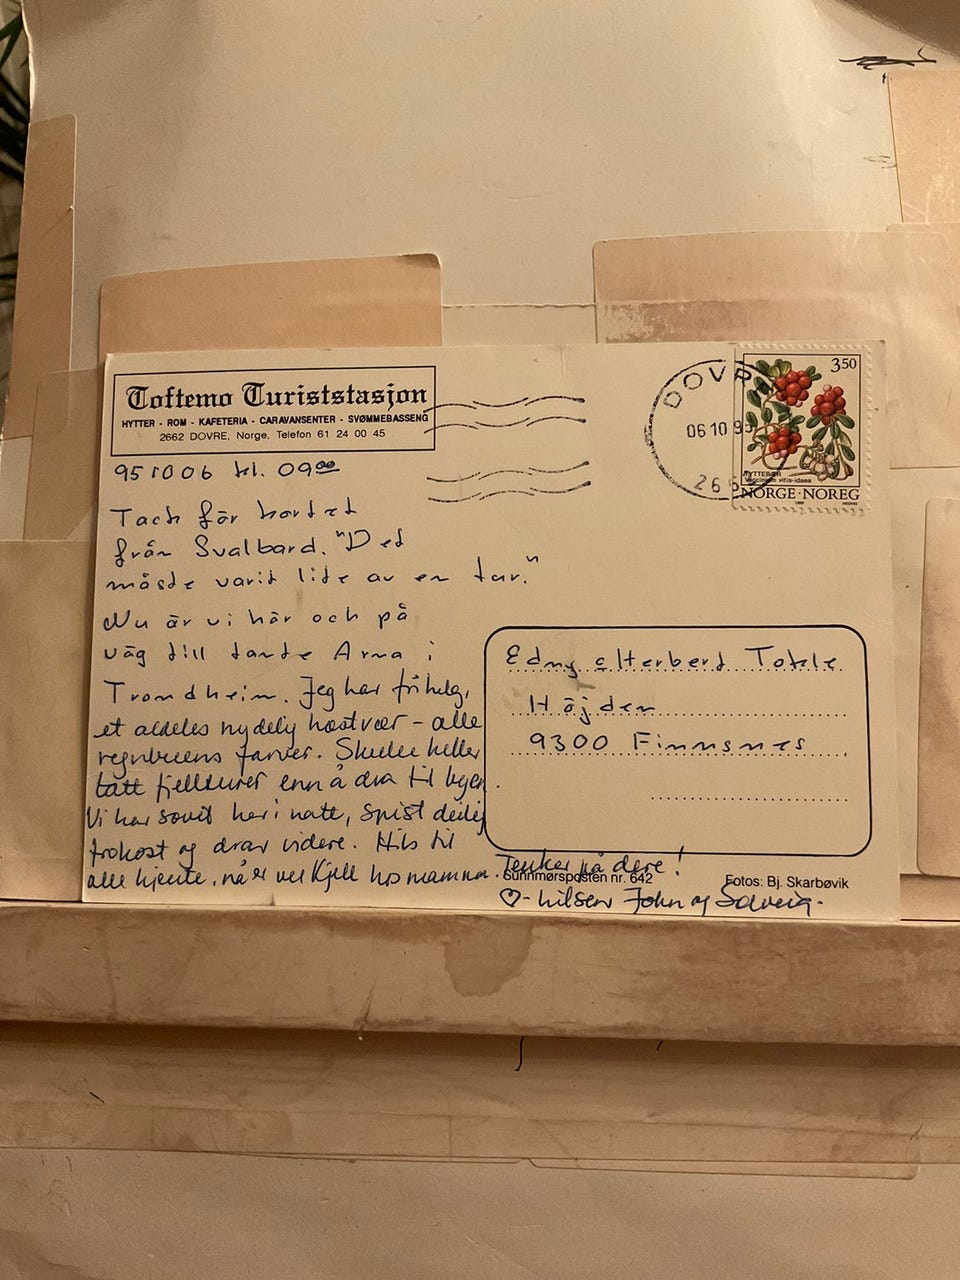 Toftemo Turiststasjon
HYTTER - ROM - KAFETERIA - CARAVANSENTER - SVØMMEBASSENG
2662 DOVRE, Norge, Telefon 61 24 00 45
DOVR
06 10 95
266
350
TYTTEBÆR
Vaccinium vitis-idaea
NORGE·NOREG
951006 kl. 09⁰⁰
Tack för kortet
från Svalbard. "Det
måste varit lite av en tur."
Nu är vi här och på
väg till tante Arna i
Trondheim. Jeg har frihelg,
et aldeles nydelig høstvær - alle
regnbuens farver. Skulle heller
tatt fjellturer enn å dra til byen.
Vi har sovet her i natt, spist deilig
frokost og drar videre. Hils til
alle kjente, nå er vel Kjell hos mamma. Tenker på dere!
♡- hilsen John og Solveig.
Edny Herberd Tokle
Höjden
9300 Finnsnes
Sunnmørsposten nr. 642
Fotos: Bj. Skarbøvik